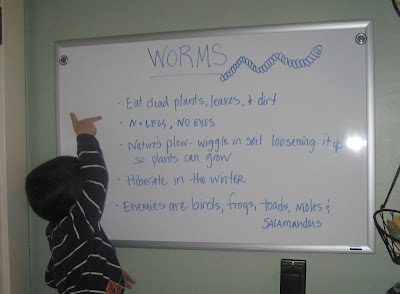 WORMS
• Eat dead plants, leaves, & dirt
• NO LEGS, NO EYES
• Nature's plow- wiggle in soil loosening it up
so plants can grow
• Hibernate in the winter
• Enemies are birds, frogs, toads, moles &
SALAMANDERS